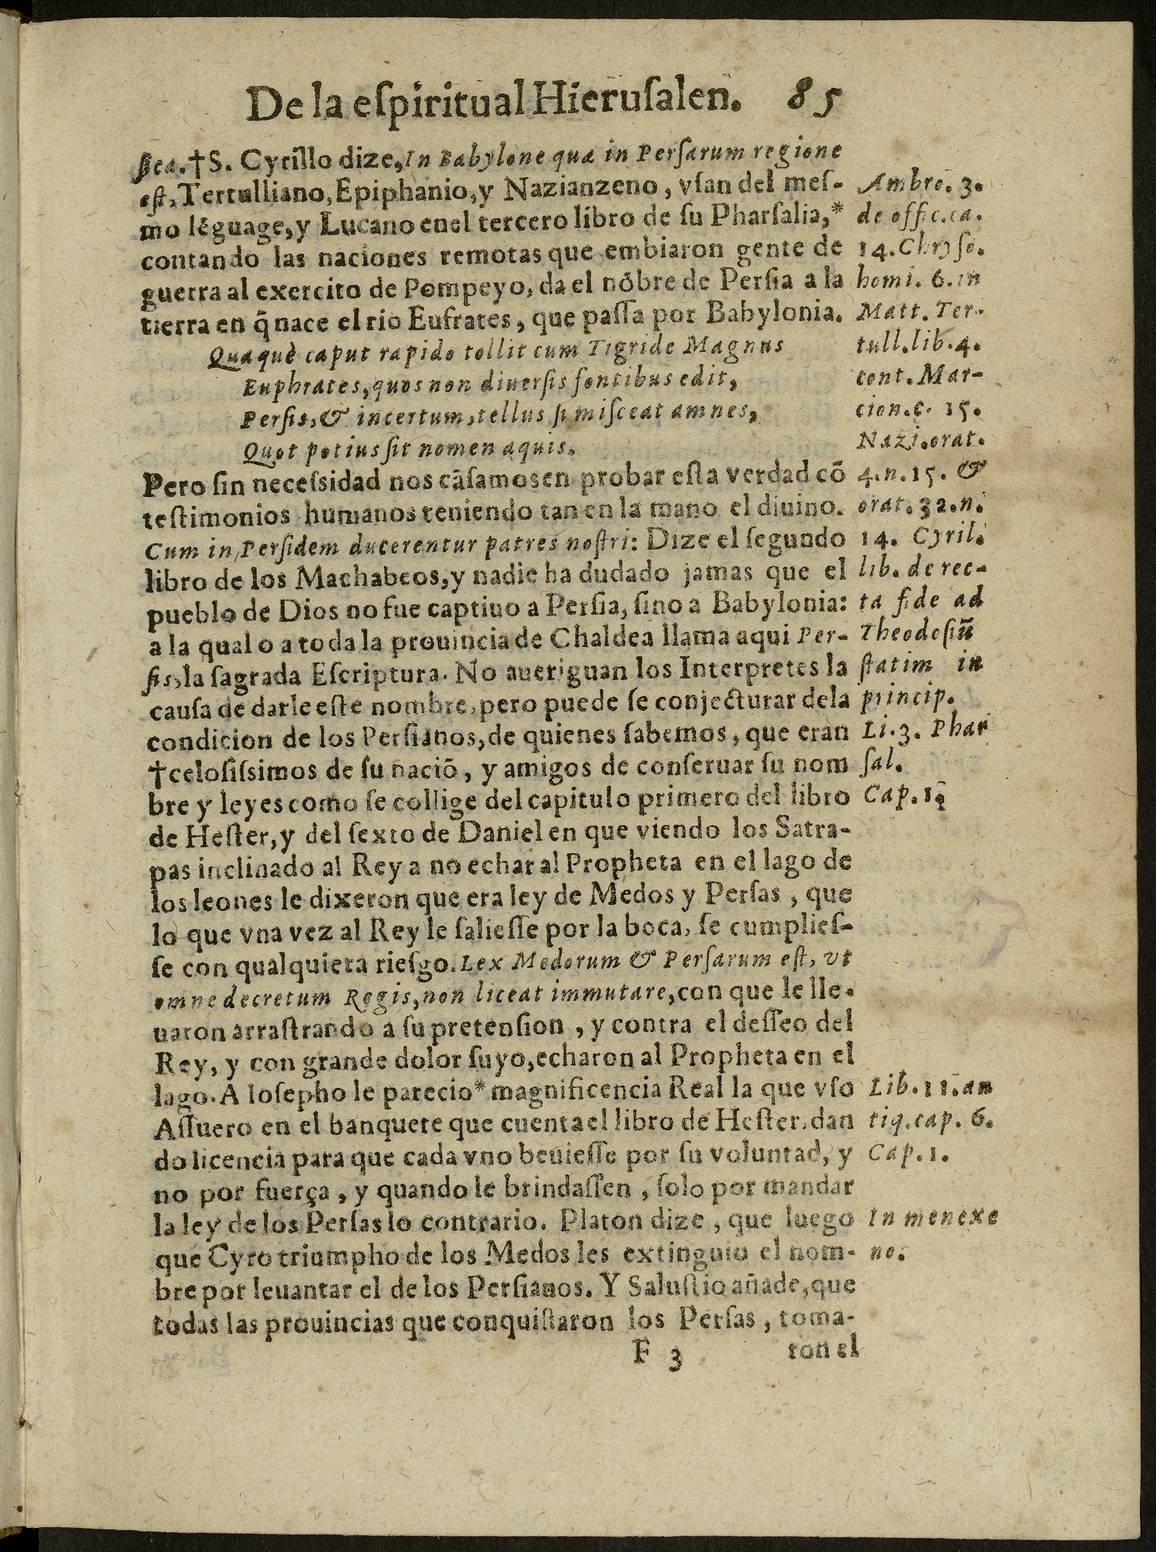 De la eſpiritual Hieruſalen. 85
ſica.†S. Cyrillo dize, In Babylone quæ in Perſarum regione
eſt, Tertulliano, Epiphanio, y Nazianzeno, vſan del meſ-
mo lẽguage, y Lucano enel tercero libro de ſu Pharſalia,*
contando las naciones remotas que embiaron gente de
guerra al exercito de Pompeyo, da el nõbre de Perſia a la
tierra en q̃ nace el rio Eufrates, que paſſa por Babylonia.
Quaquè caput rapido tollit cum Tigride Magnus
Euphrates, quos non diuerſis fontibus edit,
Perſis, & incertum, tellus ſi miſceat amnes,
Quot potius ſit nomen aquis.
Pero ſin neceſsidad nos cãſamosen probar eſta verdad cõ
teſtimonios humanos teniendo tan en la mano el diuino.
Cum in Perſidem ducerentur patres noſtri: Dize el ſegundo
libro de los Machabeos, y nadie ha dudado jamas que el
pueblo de Dios no fue captiuo a Perſia, ſino a Babylonia:
a la qual o a toda la prouincia de Chaldea llama aqui Per-
ſis, la ſagrada Eſcriptura. No aueriguan los Interpretes la
cauſa de darle eſte nombre, pero puede ſe conjecturar dela
condicion de los Perſianos, de quienes ſabemos, que eran
†celoſiſsimos de ſu naciõ, y amigos de conſeruar ſu nom
bre y leyes como ſe collige del capitulo primero del libro
de Heſter, y del ſexto de Daniel en que viendo los Satra-
pas inclinado al Rey a no echar al Propheta en el lago de
los leones le dixeron que era ley de Medos y Perſas, que
lo que vna vez al Rey le ſalieſſe por la boca, ſe cumplieſ-
ſe con qualquiera rieſgo. Lex Medorum & Perſarum eſt, vt
omne decretum Regis, non liceat immutare, con que le lle-
uaron arraſtrando a ſu pretenſion, y contra el deſſeo del
Rey, y con grande dolor ſuyo, echaron al Propheta en el
lago. A Ioſepho le parecio* magnificencia Real la que vſo
Aſſuero en el banquete que cuenta el libro de Heſter, dan
do licencia para que cada vno beuieſſe por ſu voluntad, y
no por fuerça, y quando le brindaſſen, ſolo por mandar
la ley de los Perſas lo contrario. Platon dize, que luego
que Cyro triumpho de los Medos les extinguio el nom-
bre por leuantar el de los Perſianos. Y Saluſtio añade, que
todas las prouincias que conquiſtaron los Perſas, toma-
F 3 ron el
Ambro. 3.
de offic. ca.
14. Chryſo.
homi. 6. in
Matt. Ter-
tull. lib. 4.
cont. Mar-
cion. c. 15.
Nazi. orat.
4. n. 15. &
orat. 32. n.
14. Cyril.
lib. de rec-
ta fide ad
Theodoſiũ
ſtatim in
princip.
Li. 3. Phar
ſal.
Cap. 1.
Lib. 11. an
tiq. cap. 6.
Cap. 1.
In menexe
no.